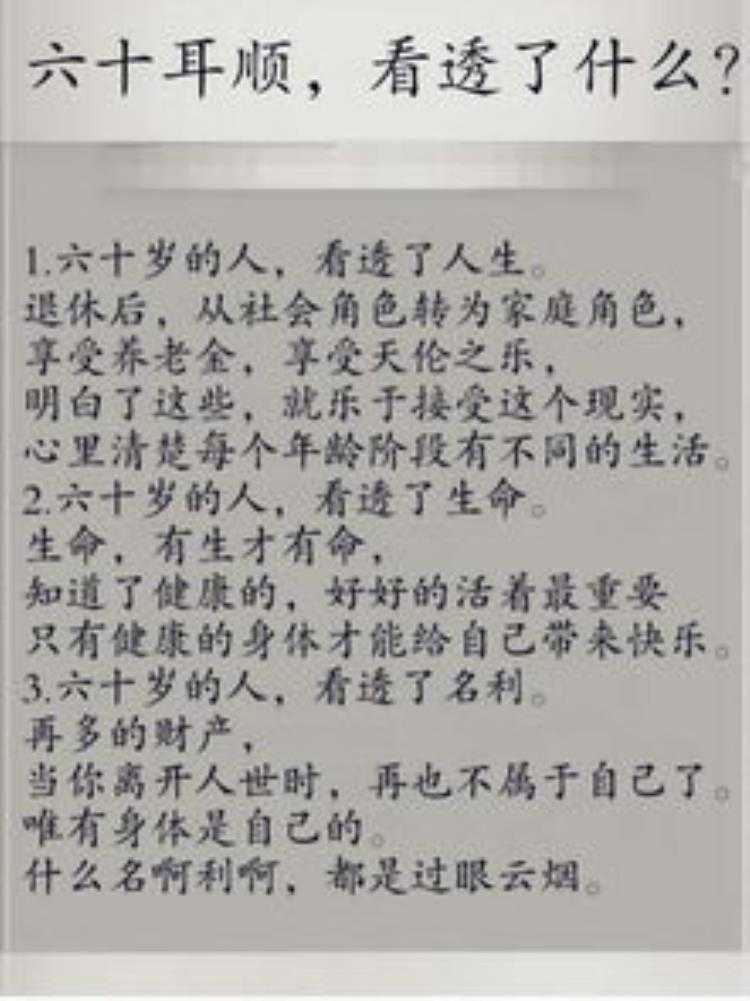 六十耳顺，看透了什么？
1.六十岁的人，看透了人生。
退休后，从社会角色转为家庭角色，
享受养老金，享受天伦之乐，
明白了这些，就乐于接受这个现实，
心里清楚每个年龄阶段有不同的生活。
2.六十岁的人，看透了生命。
生命，有生才有命，
知道了健康的，好好的活着最重要
只有健康的身体才能给自己带来快乐。
3.六十岁的人，看透了名利。
再多的财产，
当你离开人世时，再也不属于自己了。
唯有身体是自己的。
什么名啊利啊，都是过眼云烟。